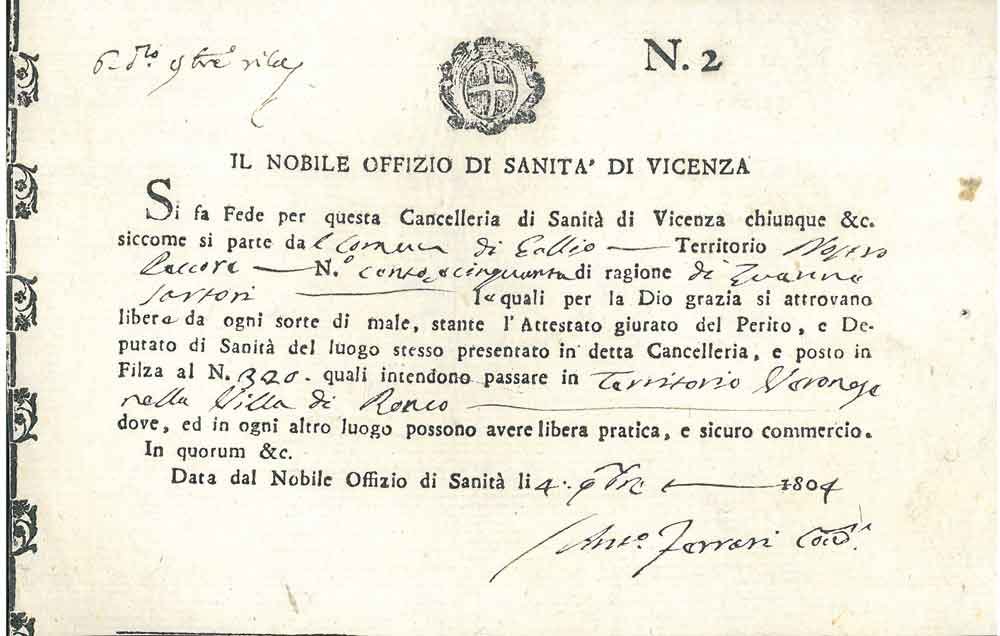 N. 2
IL NOBILE OFFIZIO DI SANITA' DI VICENZA
Si fa Fede per questa Cancelleria di Sanità di Vicenza chiunque &c.
siccome si parte dal Comun di Gallio Territorio
Peccore N.º cento, e cinquanta di ragione di Zuanne
Sartori le quali per la Dio grazia si attrovano
libere da ogni sorte di male, stante l'Attestato giurato del Perito, e De-
putato di Sanità del luogo stesso presentato in detta Cancelleria, e posto in
Filza al N. 320. quali intendono passare in Territorio Veronese
nella Villa di Ronco
dove, ed in ogni altro luogo possono avere libera pratica, e sicuro commercio.
In quorum &c.
Data dal Nobile Offizio di Sanità li 4. 9bre 1804
Anto. Ferrari